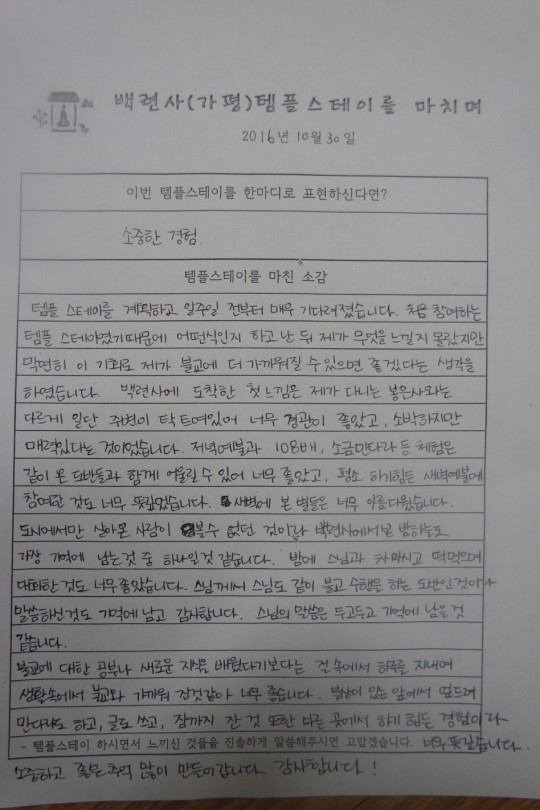 백련사(가평)템플스테이를 마치며
2016년 10월 30일
이번 템플스테이를 한마디로 표현하신다면?
소중한 경험.
템플스테이를 마친 소감
템플 스테이를 계획하고 일주일 전부터 매우 기다려졌습니다. 처음 참여하는
템플 스테이였기때문에 어떤식인지 하고 난 뒤 제가 무엇을 느낄지 몰랐지만
막연히 이 기회로 제가 불교에 더 가까워질 수 있으면 좋겠다는 생각을
하였습니다. 백련사에 도착한 첫 느낌은 제가 다니는 봉은사와는
다르게 일단 주변이 탁 트여있어 너무 경관이 좋았고, 소박하지만
매력있다는 것이었습니다. 저녁예불과 108배, 소금만다라 등 체험은
같이 온 도반들과 함께 어울릴 수 있어 너무 좋았고, 평소 하기힘든 새벽예불에
참여한 것도 너무 뜻깊었습니다. 새벽에 본 별들은 너무 아름다웠습니다.
도시에서만 살아온 사람이 볼수 없던 것이라 백련사에서본 밤하늘도
가장 기억에 남는것 중 하나일것 같습니다. 밤에 스님과 차마시고 떡먹으며
대화한것도 너무좋았습니다. 스님께서 스님도 같이 불교 수행을 하는 도반인것이라
말씀하신것도 기억에 남고 감사합니다. 스님의 말씀은 두고두고 기억에 남을 것
같습니다.
불교에 대한 공부나 새로운 지식을 배웠다기보다는 절 속에서 하루를 지내며
생활속에서 불교와 가까워 진것같아 너무 좋습니다. 불상이 있는 앞에서 엎드려
만다라도 하고, 글도 쓰고, 잠까지 잔 것 또한 다른 곳에서 하기 힘든 경험이라
- 템플스테이 하시면서 느끼신 것들을 진솔하게 말씀해주시면 고맙겠습니다. 너무 뜻깊습니다.
소중하고 좋은 추억 많이 만들어갑니다. 감사합니다!